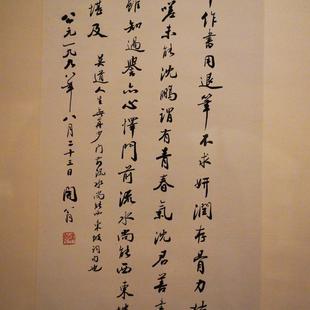 作書用退筆不求妍潤存骨力
嗟未能沈鵬謂有青春氣沈君善
雖知過譽亦心懌門前流水尚能西東坡
堪及 莫道人生無再少门前流水尚能西東坡詞句也
公元一九九八年八月二十三日